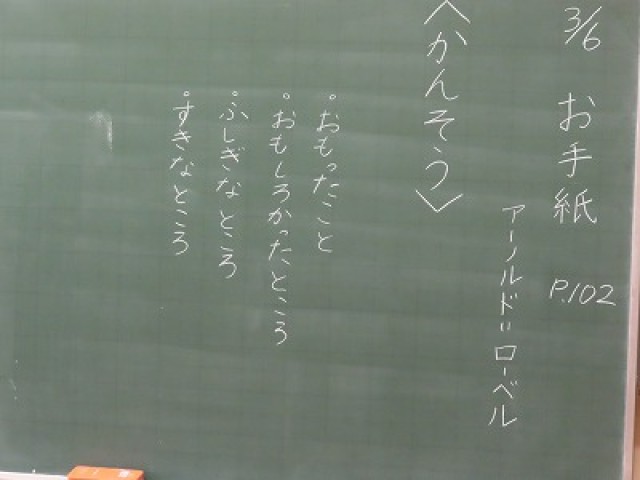 3/6 お手紙 P.102
アーノルド=ローベル
〈かんそう〉
。おもったこと
。おもしろかったところ
。ふしぎなところ
。すきなところ